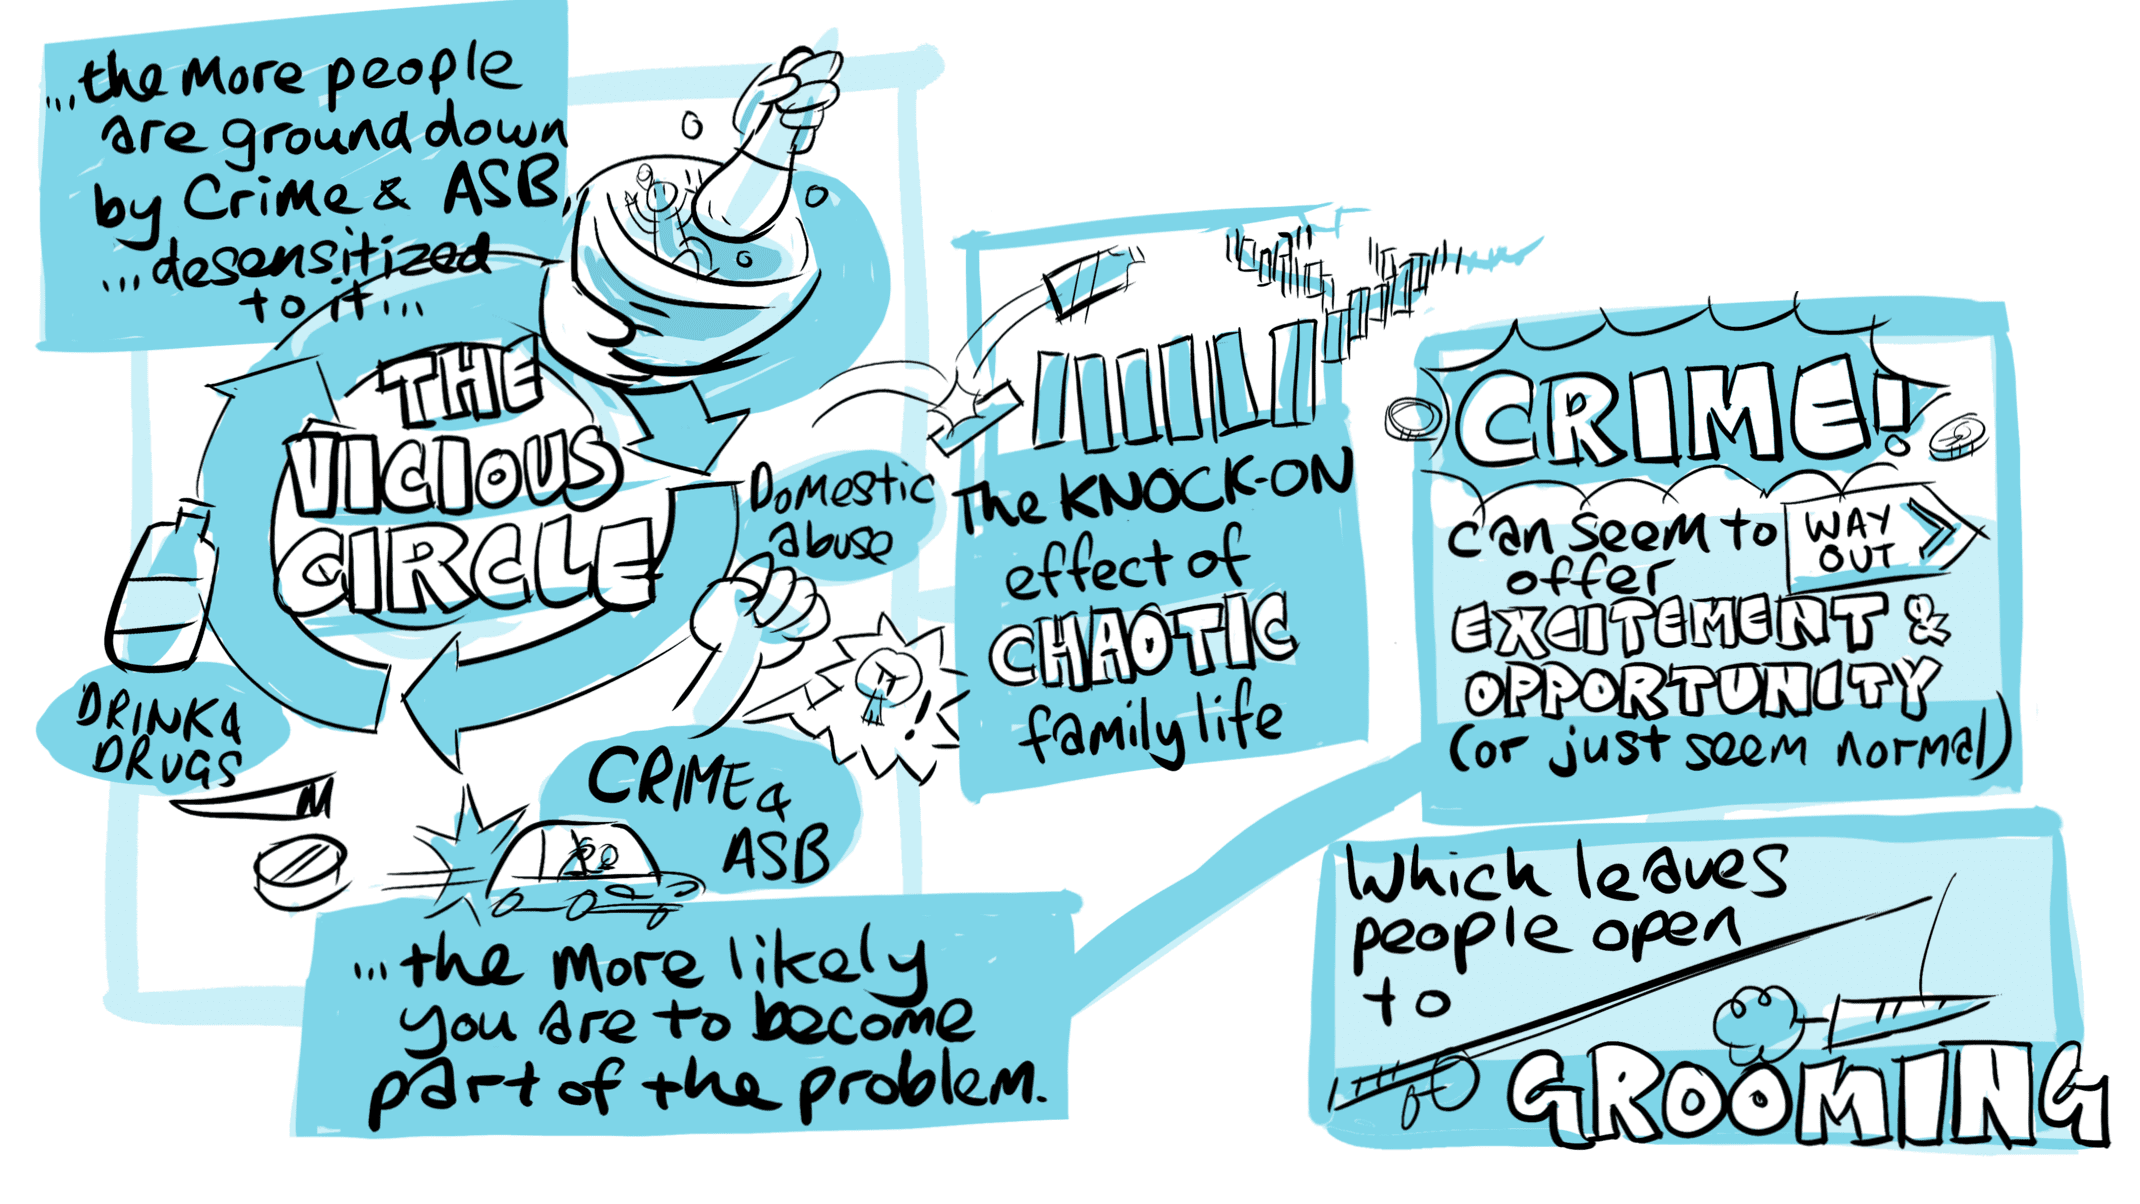 ...the more people
are ground down
by Crime & ASB,
...desensitized
to it...
THE
VICIOUS
CIRCLE
Domestic
abuse
DRINK &
DRUGS
CRIME &
ASB
...the more likely
you are to become
part of the problem.
The KNOCK-ON
effect of
CHAOTIC
family life
CRIME!
can seem to
offer
WAY
OUT
EXCITEMENT &
OPPORTUNITY
(or just seem normal)
Which leaves
people open
to
GROOMING